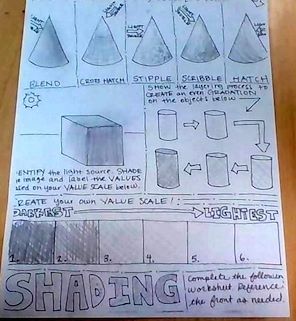 BLEND CROSS HATCH STIPPLE SCRIBBLE HATCH
SHOW the layering process to
CREATE an even GRADATION
on the objects below
IDENTIFY the light source. SHADE
image and label the VALUES
used on your VALUE SCALE below.
CREATE your own VALUE SCALE!
DARKEST LIGHTEST
1. 2. 3. 4. 5. 6.
SHADING
Complete the following
worksheet. Reference
the front as needed.